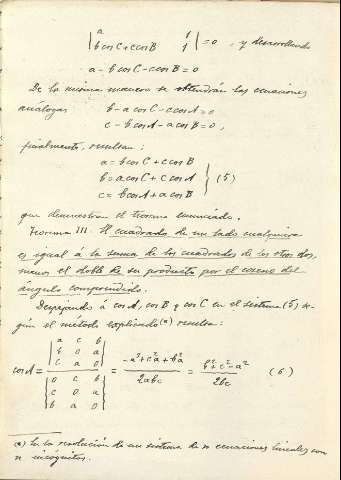 | a 1 |
| b cos C + c cos B 1 | = 0 , y desarrollando
a - b cos C - c cos B = 0
De la misma manera se obtendrán las ecuaciones
análogas b - a cos C - c cos A = 0
c - b cos A - a cos B = 0 ,
finalmente, resultan :
a = b cos C + c cos B
b = a cos C + c cos A } (5)
c = b cos A + a cos B
que demuestran el teorema enunciado.
Teorema III. El cuadrado de un lado cualquiera
es igual á la suma de los cuadrados de los otros dos,
menos el doble de su producto por el coseno del
ángulo comprendido.
Despejando á cos A, cos B y cos C en el sistema (5) se-
gún el método explicado (*) resulta :
| a c b |
| b 0 a |
| c a 0 |
cos A = ――― = (-a³ + c²a + b²a) / 2abc = (b² + c² - a²) / 2bc (6)
| 0 c b |
| c 0 a |
| b a 0 |
(*) En la resolución de un sistema de n ecuaciones lineales con
n incógnitas.